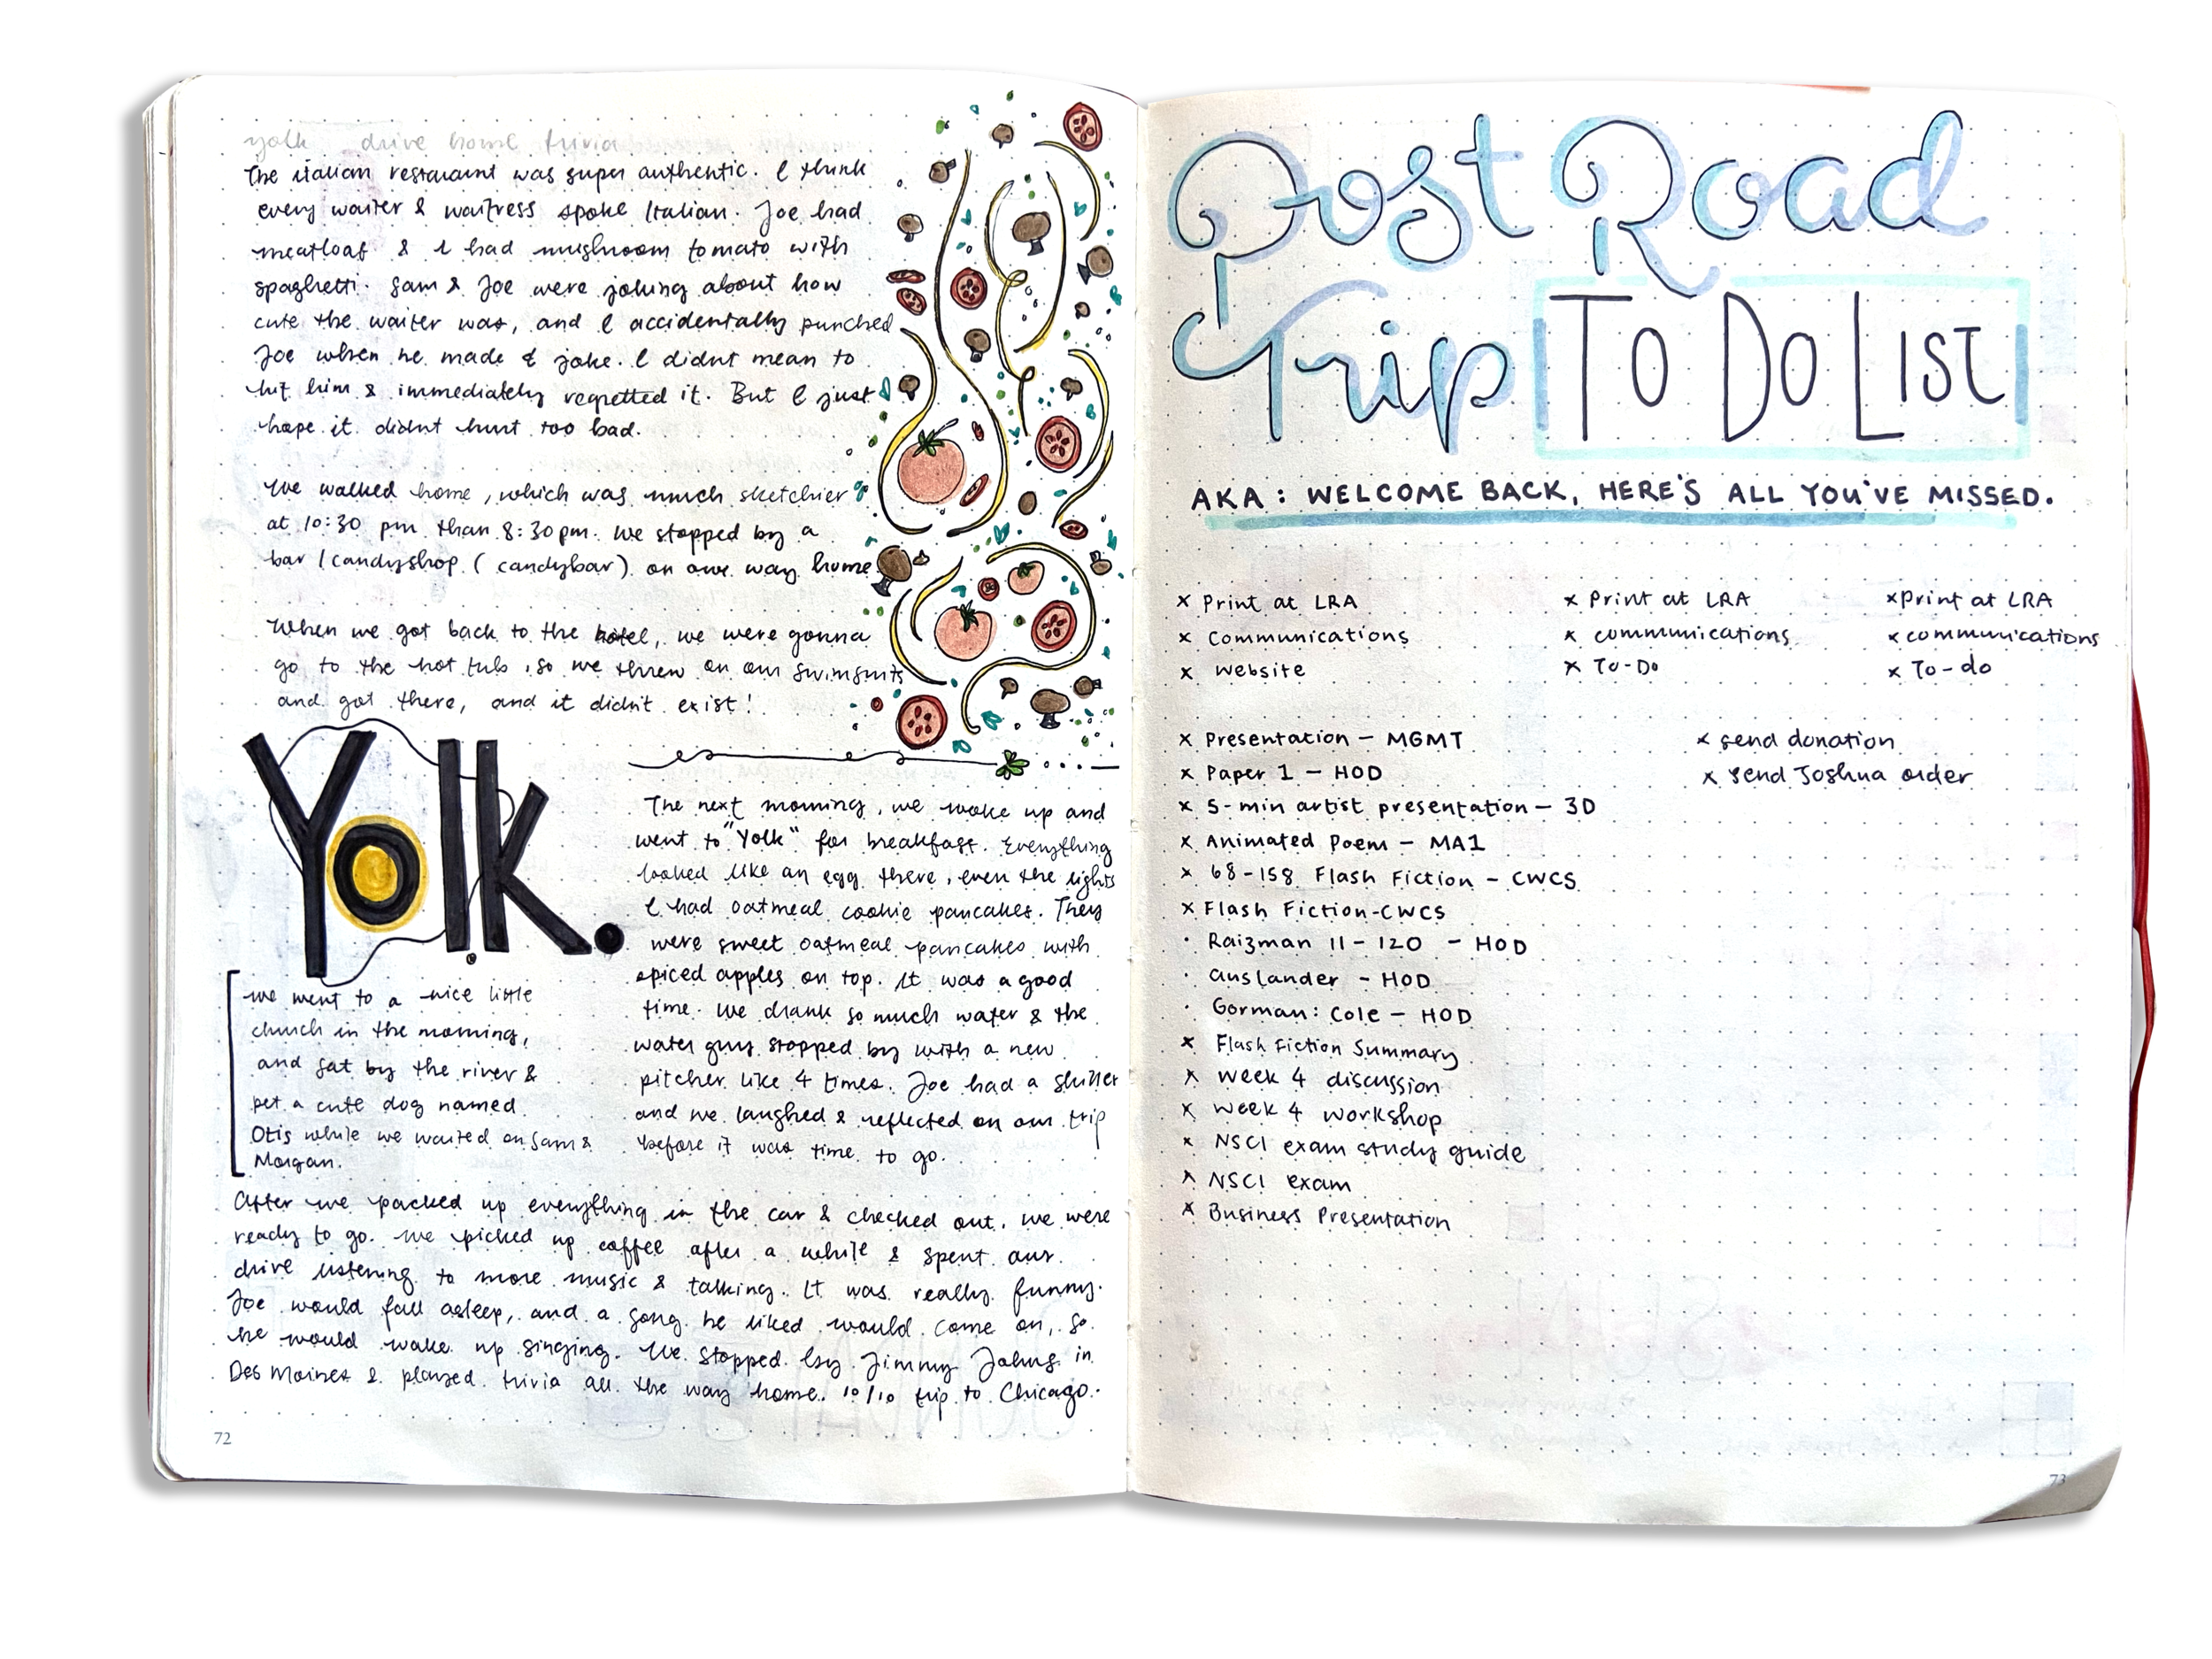 yolk drive home trivia
The italian restaurant was super authentic. I think
every waiter & waitress spoke Italian. Joe had
meatloaf & I had mushroom tomato with
spaghetti. Sam & Joe were joking about how
cute the waiter was, and I accidentally punched
Joe when he made a joke. I didnt mean to
hit him & immediately regretted it. But I just
hope it didnt hurt too bad.
We walked home, which was much sketchier
at 10:30 pm than 8:30pm. We stopped by a
bar / candyshop (candybar) on our way home
When we got back to the hotel, we were gonna
go to the hot tub, so we threw on our swimsuits
and got there, and it didn't exist!
Yolk.
we went to a nice little
church in the morning,
and sat by the river &
pet a cute dog named
Otis while we waited on Sam &
Morgan.
The next morning, we woke up and
went to "Yolk" for breakfast. Everything
looked like an egg there, even the lights
I had oatmeal cookie pancakes. They
were sweet oatmeal pancakes with
spiced apples on top. It was a good
time. We drank so much water & the
water guy stopped by with a new
pitcher like 4 times. Joe had a skillet
and we laughed & reflected on our trip
before it was time to go.
After we packed up everything in the car & checked out, we were
ready to go. We picked up coffee after a while & spent our
drive listening to more music & talking. It was really funny.
Joe would fall asleep, and a song he liked would come on, so
he would wake up singing. We stopped by Jimmy Johns in
Des Moines & played trivia all the way home. 10/10 trip to Chicago.
72
Post Road
Trip To Do List
AKA: WELCOME BACK, HERE'S ALL YOU'VE MISSED.
x Print at LRA
x Communications
x Website
x Print at LRA
x communications
x To-Do
x Print at LRA
x communications
x To-do
x Presentation - MGMT
x Paper 1 - HOD
x 5-min artist presentation - 3D
x Animated Poem - MA1
x 68-158 Flash Fiction - CWCS
x Flash Fiction-CWCS
· Raizman 11-120 - HOD
· Auslander - HOD
· Gorman: Cole - HOD
x Flash Fiction Summary
x Week 4 discussion
x Week 4 workshop
x NSCI exam study guide
x NSCI exam
x Business Presentation
x send donation
x send Joshua order
73